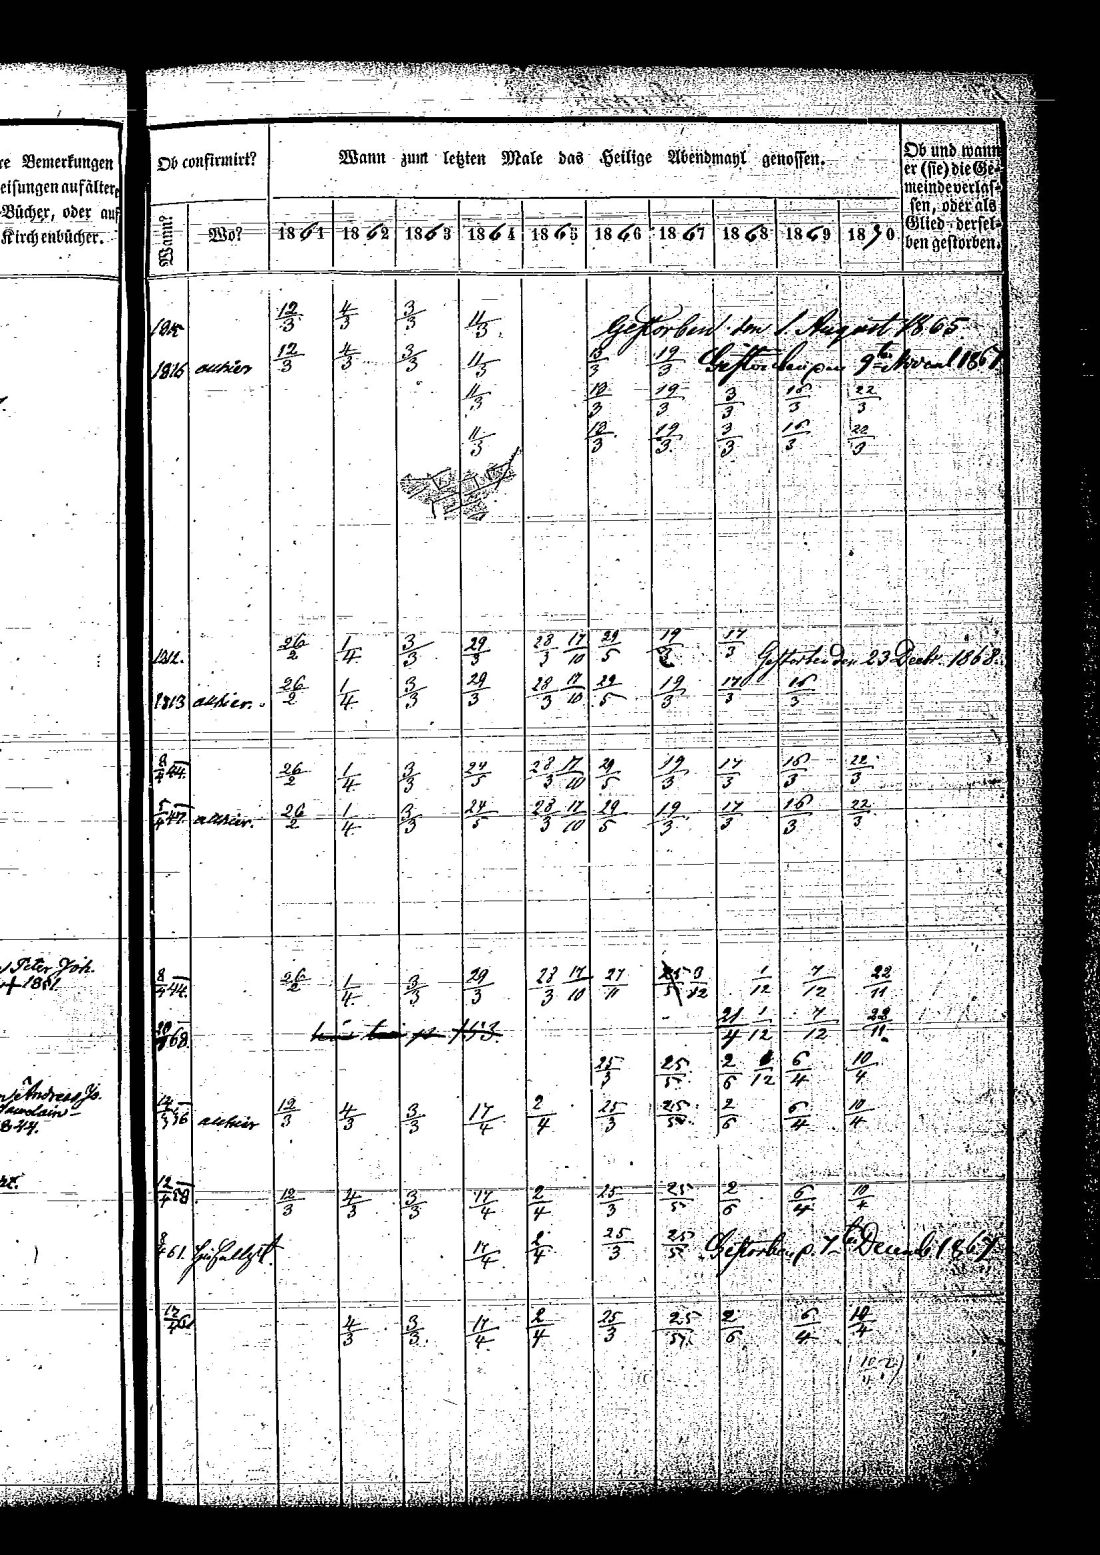 re Bemerkungen
eisungen auf ältere
Bücher, oder auf
Kirchenbücher.
Ob confirmirt?
Wann?
Wo?
Wann zum letzten Male das Heilige Abendmahl genossen.
1861 1862 1863 1864 1865 1866 1867 1868 1869 1870
Ob und wann
er (sie) die Ge-
meinde verlas-
sen, oder als
Glied dersel-
ben gestorben.
12/3 4/3 3/3 11/3. Gestorben den 1. August 1865
1816 allhier 12/3 4/3 3/3 11/3 13/3 19/3 Gestorben 9ten 1867.
11/3 13/3 19/3 3/3 16/3 22/3
11/3 13/3 19/3 3/3 16/3 22/3
1812. 26/2 1/4 3/3 29/3 28/3 17/10 29/5 19/3 17/3 Gestorben den 23 Decbr. 1868.
1813 allhier. 26/2 1/4 3/3 29/3 28/3 17/10 29/5 19/3 17/3 16/3
8/4 44. 26/2 1/4 3/3 24/5 28/3 17/10 29/5 19/3 17/3 16/3 22/3
47. allhier. 26/2 1/4 3/3 24/5 28/3 17/10 29/5 19/3 17/3 16/3 22/3
Peter Joh.
+ 1861
44. 26/2 1/4 3/3 29/3 28/3 17/10 27/11 25/5 3/12 1/12 7/12 22/11
68. 153. 21/4 1/12 7/12 22/11
25/3 25/5 2/6 6/4 10/4
Andreas Jo.
1844.
56 allhier 12/3 4/3 3/3 17/4 2/4 25/3 25/5 2/6 6/4 10/4
12/4 58. 12/3 4/3 3/3 17/4 2/4 25/3 25/5 2/6 6/4 10/4
61. 17/4 2/4 25/3 25/5 Gestorben 7ten Decemb. 1867
4/3 3/3. 17/4 2/4 25/3 25/5 2/6 6/4 10/4